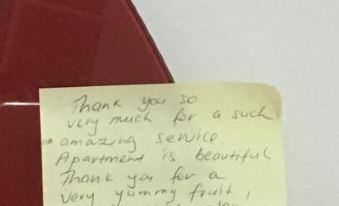 Thank you so
very much for a such
amazing service.
Apartment is beautiful
Thank you for a
very yummy fruit,